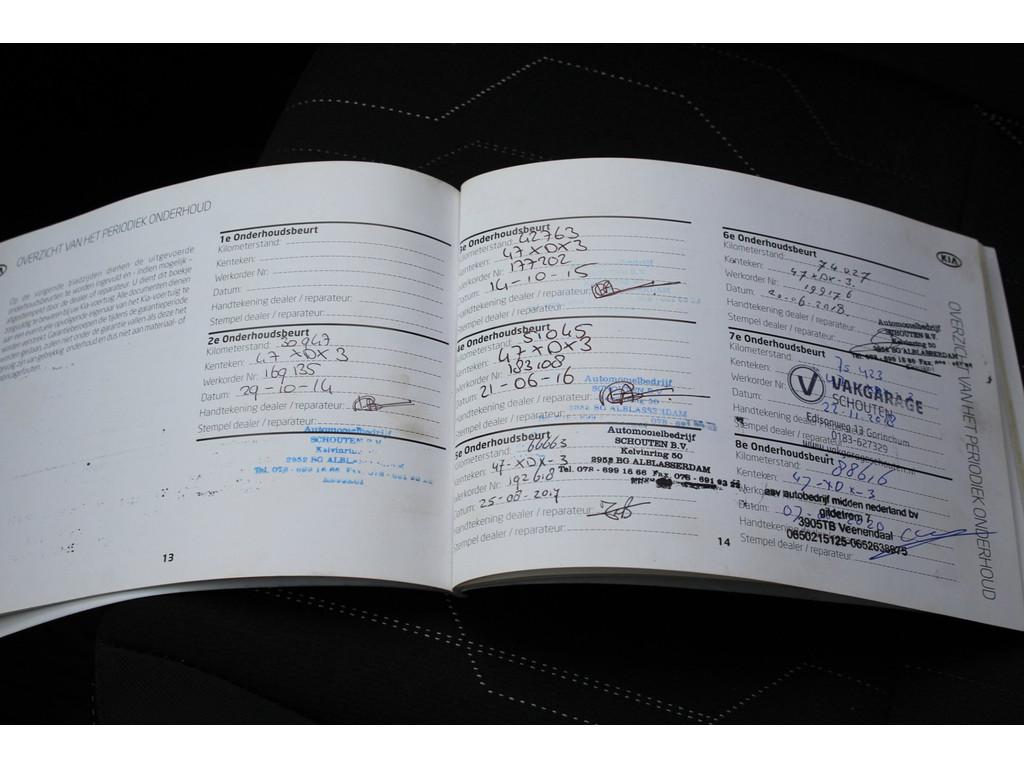 OVERZICHT VAN HET PERIODIEK ONDERHOUD
Op de volgende bladzijden dienen de uitgevoerde
onderhoudsbeurten te worden ingevuld en - indien mogelijk -
afgestempeld door de dealer of reparateur. U dient dit boekje
zorgvuldig te bewaren bij uw Kia-voertuig te
1e Onderhoudsbeurt
Kilometerstand:
Kenteken:
Werkorder Nr:
Datum:
Handtekening dealer / reparateur:
Stempel dealer / reparateur:
2e Onderhoudsbeurt
Kilometerstand: 30947
Kenteken: 47 XDX 3
Werkorder Nr: 169135
Datum: 29-10-14
Handtekening dealer / reparateur:
Stempel dealer / reparateur:
Automobielbedrijf
SCHOUTEN B.V.
2952 BG ALBL
Tel. 078 - 699 16 66 Fax 078 - 691
13
3e Onderhoudsbeurt
Kilometerstand: 42763
Kenteken: 47 XDX 3
Werkorder Nr: 177202
Datum: 14-10-15
Handtekening dealer / reparateur:
Stempel dealer / reparateur:
4e Onderhoudsbeurt
Kilometerstand: 51045
Kenteken: 47 XDX 3
Werkorder Nr: 183108
Datum: 21-06-16
Handtekening dealer / reparateur:
Stempel dealer / reparateur:
Automobielbedrijf
2952 BG ALBLASSERDAM
5e Onderhoudsbeurt
Kilometerstand: 66663
Kenteken: 47-XDX-3
Werkorder Nr: 192618
Datum: 25-08-2017
Handtekening dealer / reparateur:
Stempel dealer / reparateur:
Automobielbedrijf
SCHOUTEN B.V.
Kelvinring 50
2952 BG ALBLASSERDAM
Tel. 078 - 699 16 66 Fax. 078 - 691 93 25
14
KIA
6e Onderhoudsbeurt
Kilometerstand: 74.027
Kenteken: 47-XDX-3
Werkorder Nr: 199176
Datum: 20-06-2018
Handtekening dealer / reparateur:
Stempel dealer / reparateur:
Automobielbedrijf
SCHOUTEN B.V.
Kelvinring 50
2954 BG ALBLASSERDAM
7e Onderhoudsbeurt
Kilometerstand: 75.423
Kenteken:
Werkorder Nr:
Datum: 22-11-2018
Handtekening dealer
Stempel dealer
VAKGARAGE
SCHOUTEN
Edisonweg 13 Gorinchem
0183-627329
8e Onderhoudsbeurt
Kilometerstand: 88616
Kenteken: 47-XDX-3
Datum: 07- -2020
Handtekening
Stempel dealer / reparateur:
asv autobedrijf midden nederland bv
gildetrom 7
3905TB Veenendaal
0650215125-0652638975
OVERZICHT VAN HET PERIODIEK ONDERHOUD